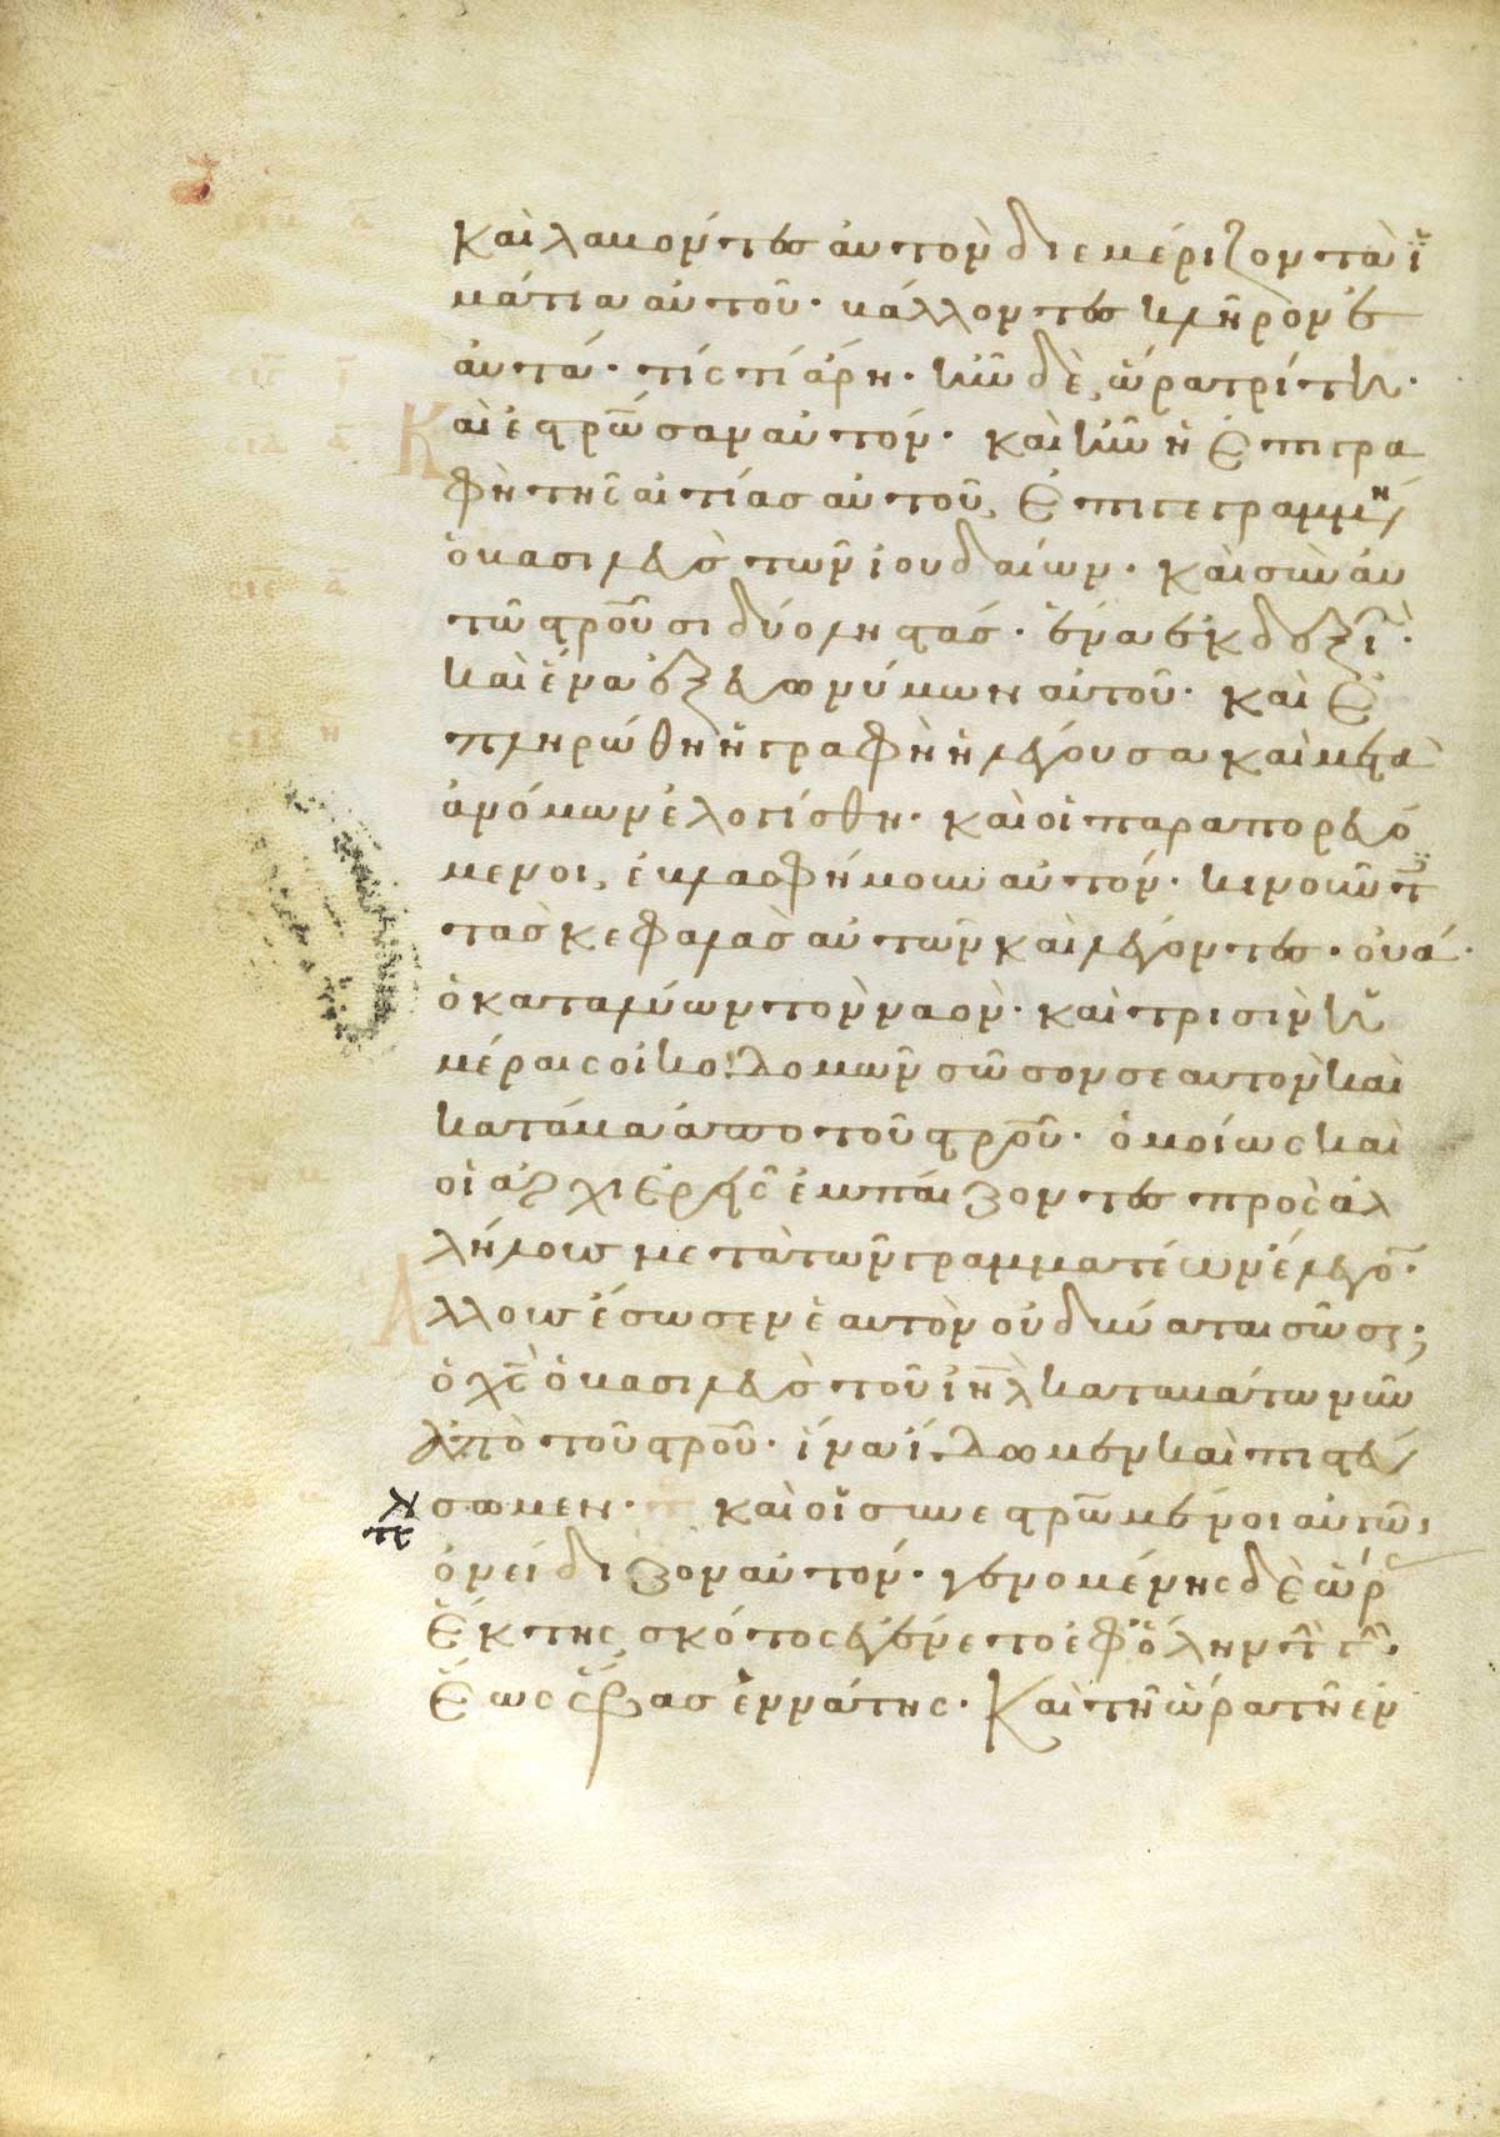 καὶ λαβόντες αὐτὸν διεμέριζον τὰ ἱ
μάτια αὐτοῦ· βάλλοντες κλῆρον ἐπ
αὐτά· τίς τί ἄρη· ἦν δὲ, ὥρα τρίτη·
Καὶ ἐσ̅ρ̅ωσαν αὐτόν· καὶ ἦν ἡ ἐπιγρα
φὴ τῆς αἰτίας αὐτοῦ, ἐπιγεγραμμένη
ὁ βασιλεὺς τῶν ἰουδαίων· καὶ σὺν αὐ
τῶ στρο̅ῦσι δύο ληστάς· ἕνα ἐκ δεξι·
καὶ ἕνα ἐξ εὐωνύμων αὐτοῦ· καὶ ἐ
πληρώθη ἡ γραφὴ ἡ λέγουσα καὶ μετὰ
ἀνόμων ἐλογίσθη· καὶ οἱ παραπορευό
μενοι, ἐβλασφήμουν αὐτόν· κινοῦντ
τὰς κεφαλὰς αὐτῶν καὶ λέγοντες· οὐά·
ὁ καταλύων τὸν ναὸν· καὶ τρισὶν ἡ
μέραις οἰκοδομῶν σῶσον σεαυτὸν καὶ
κατάβα ἀπο τοῦ στρο̅ῦ· ὁμοίως καὶ
οἱ ἀρχιερεῖς ἐμπαίζοντες πρὸς ἀλ
λήλους μετὰ τῶν γραμματέων ἔλεγο̅·
Ἄλλους ἔσωσεν ἑαυτὸν οὐ δύναται σῶσαι;
ὁ χ̅ς̅ ὁ βασιλεὺς τοῦ ι̅η̅λ̅ καταβάτω νῦν
ἀπὸ τοῦ στρο̅ῦ· ἵνα ἴδωμεν καὶ πιστεύ
σωμεν· καὶ οἱ συνεστρ̅ωμένοι αὐτῶ,
ὠνείδιζον αὐτόν· γενομένης δὲ ὥρ
ἕκτης, σκότος ἐγένετο ἐφ' ὅλην τ̅ γ̅·
ἕως ὥρας ἐννάτης· Καὶ τῆ ὥρα τῆ ἐν